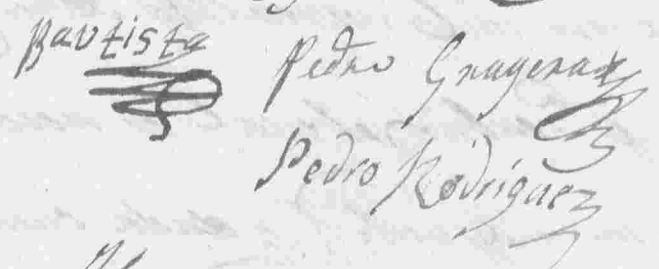 Bautista
Pedro Gragera
Pedro Rodriguez